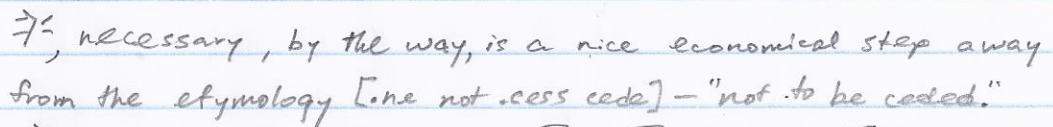 necessary, by the way, is a nice economical step away
from the etymology [.ne not .cess cede] – "not .to be ceded."